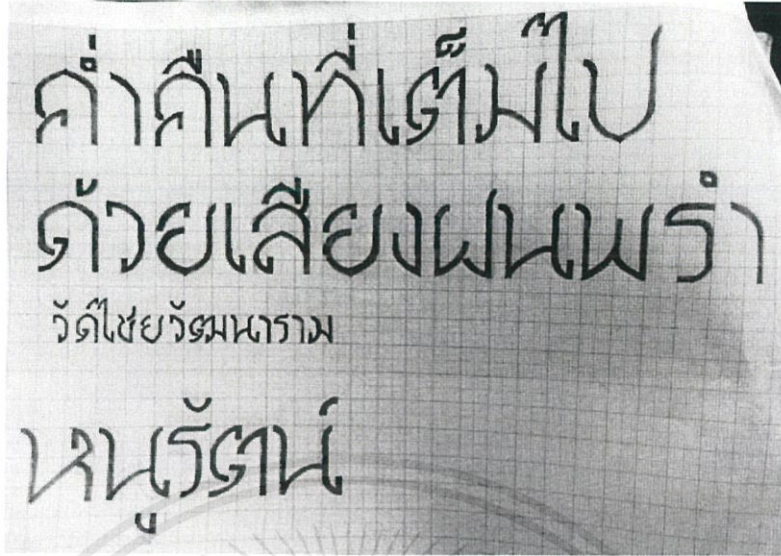 ค่ำคืนที่เต็มไป
ด้วยเสียงฝนพรำ
วัดไชยวัฒนาราม
หนูรัตน์